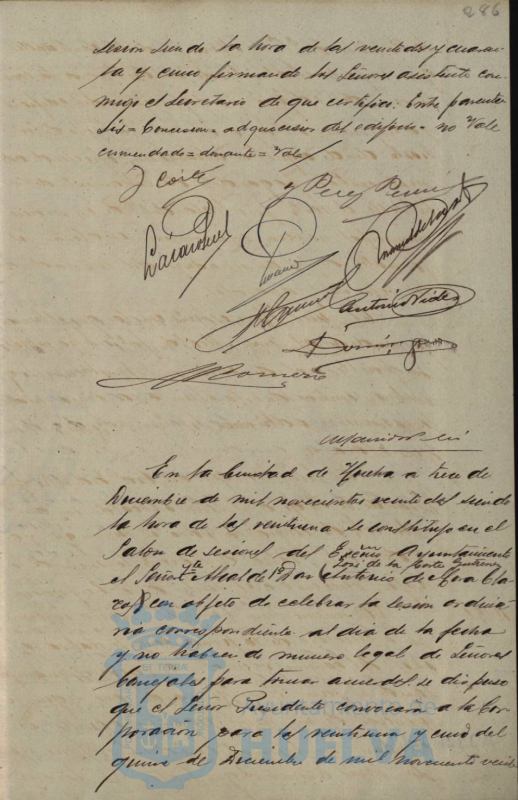 286
sesion siendo la hora de las veintidos y cuaren-
ta y cinco firmando los Señores asistente con-
migo el Secretario de que certifico. Entre parente-
sis = Concesion = adquisicion del edificio = no Vale
enmendado = durante = Vale
J Corte y Perez
Antonio
Romero
En la Ciudad de Huelva a trece de
Diciembre de mil novecientos veinte dos siendo
la hora de las veintiuna se constituyo en el
Salon de sesiones del Excmo Ayuntamiento
José de la Corte Gutierrez
el Señor Alcalde 1º Don Antonio de Mora Cla-
ros con objeto de celebrar la sesion ordina-
ria correspondiente al dia de la fecha
y no habiendo numero legal de Señores
Concejales para tomar acuerdos se dispuso
que el Señor Presidente convocara a la Cor-
poración para las veintiuna y del
quince de Diciembre de mil novecientos veinte
HUELVA